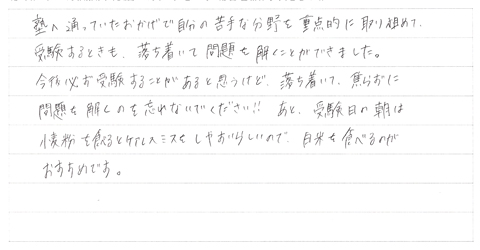 塾へ通っていたおかげで自分の苦手な分野を重点的に取り組めて、
受験するときも、落ち着いて問題を解くことができました。
今後必ず受験することがあると思うけど、落ち着いて、焦らずに
問題を解くのを忘れないでください!! あと、受験日の朝は
小麦粉を食べるとケアレスミスをしやすいらしいので、白米を食べるのが
おすすめです。